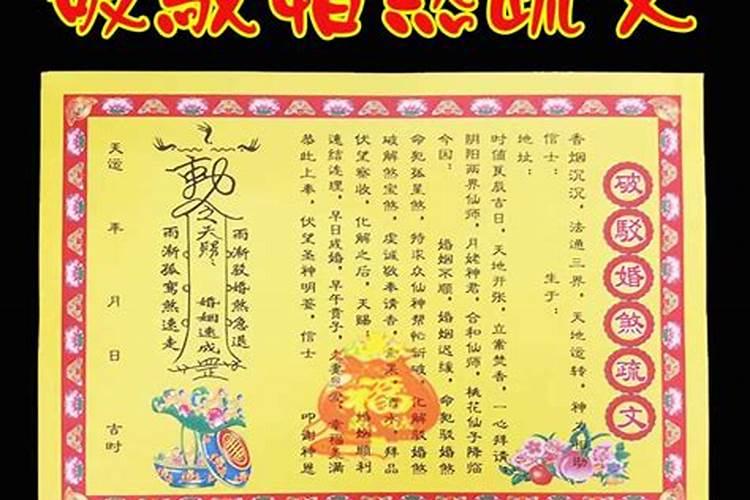 破駁婚煞疏文
破駁婚煞疏文
香烟沉沉，法通三界，天地运转，神 相助
信士： 生于：
地址：
时值良辰吉日，天地开张，立案焚香，一心拜请
阴阳两界仙师，月姥神君，合和仙师，桃花仙子降临
今因： 婚姻不顺，婚姻迟缓，命犯驳婚煞
命犯孤星煞，特求众仙神帮忙祈破，化解驳婚煞
破解煞宝煞，虔诚敬奉请香， 水，拜品
伏望察收，化解之后，天赐 婚姻顺利
速结连理，早日成婚，早午贵子， 幸福美满
恭此上奉，伏望圣神明鉴，信士 叩谢神恩
雨渐驳婚煞急退
敕令
天赐
婚姻速成
罡
雨渐孤鸾煞速走
天运 年 月 日 吉时
福